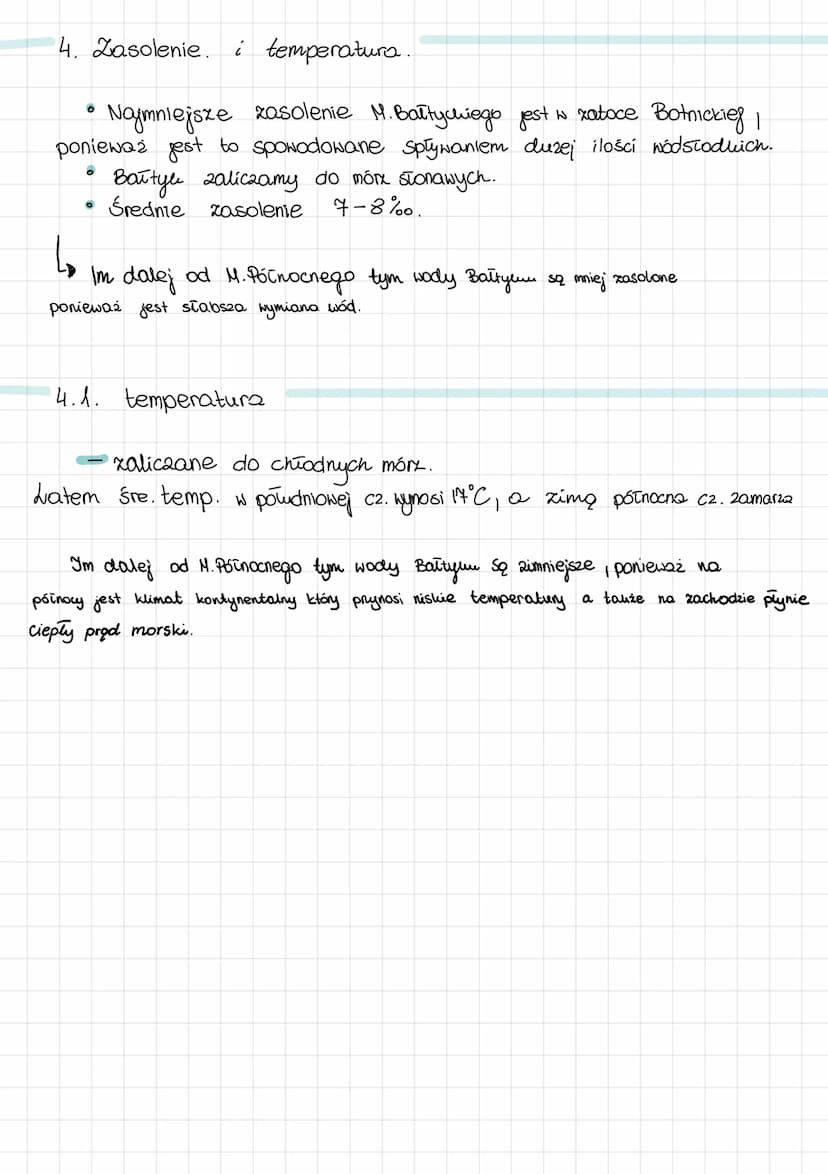 4. Zasolenie. i temperatura.
• Najmniejsze zasolenie M.Bałtyckiego jest w zatoce Botnickiej,
ponieważ jest to spowodowane spływaniem dużej ilości wódsłodkich.
• Bałtyk zaliczamy do mórz słonawych.
• Średnie zasolenie 7-8‰.
↳ Im dalej od M.Północnego tym wody Bałtyku są mniej zasolone
ponieważ jest słabsza wymiana wód.
4.1. temperatura
- zaliczane do chłodnych mórz.
Latem śre. temp. w południowej cz. wynosi 17°C, a zimą północna cz. zamarza
Im dalej od M.Północnego tym wody Bałtyku są zimniejsze, ponieważ na
północy jest klimat kontynentalny który prynosi niskie temperatury a także na zachodzie płynie
ciepły prąd morski.